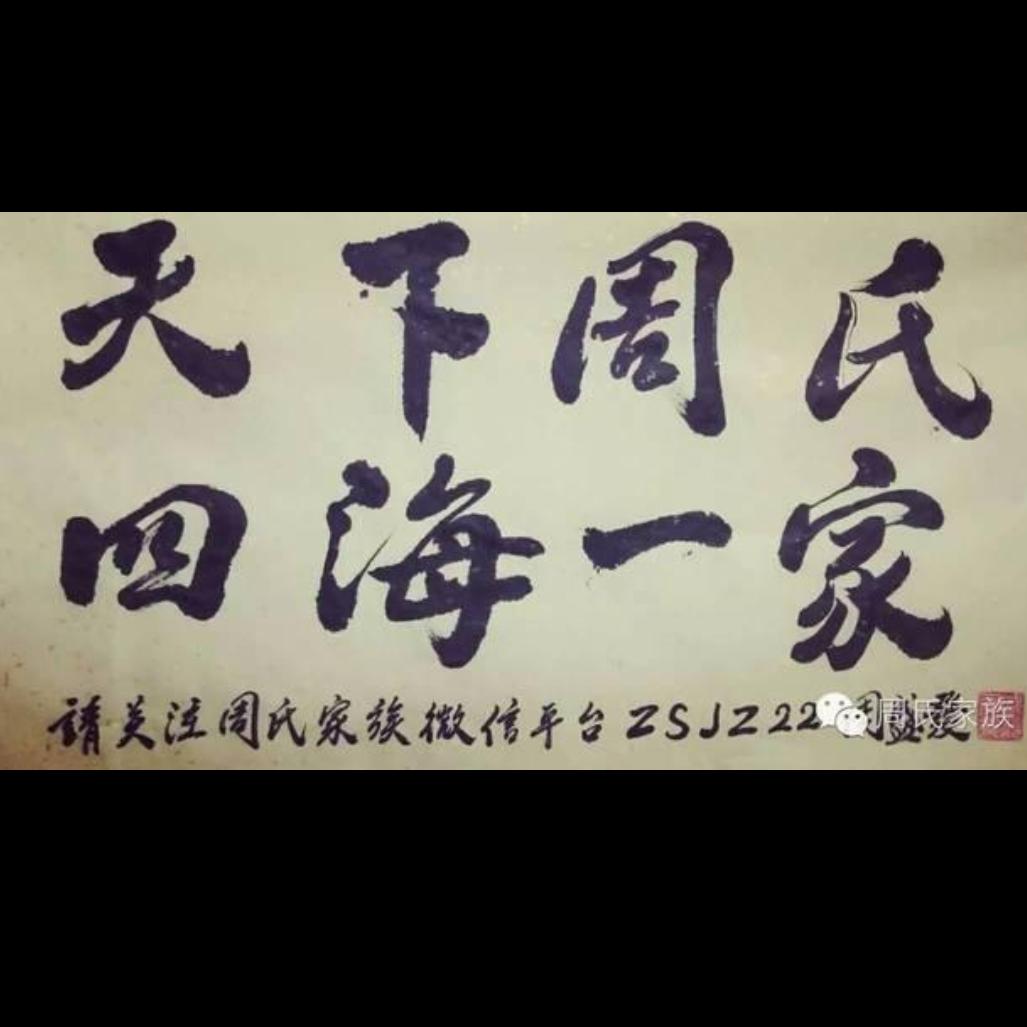 天下周氏
四海一家
請关注周氏家族微信平台ZSJZ22
周氏家族